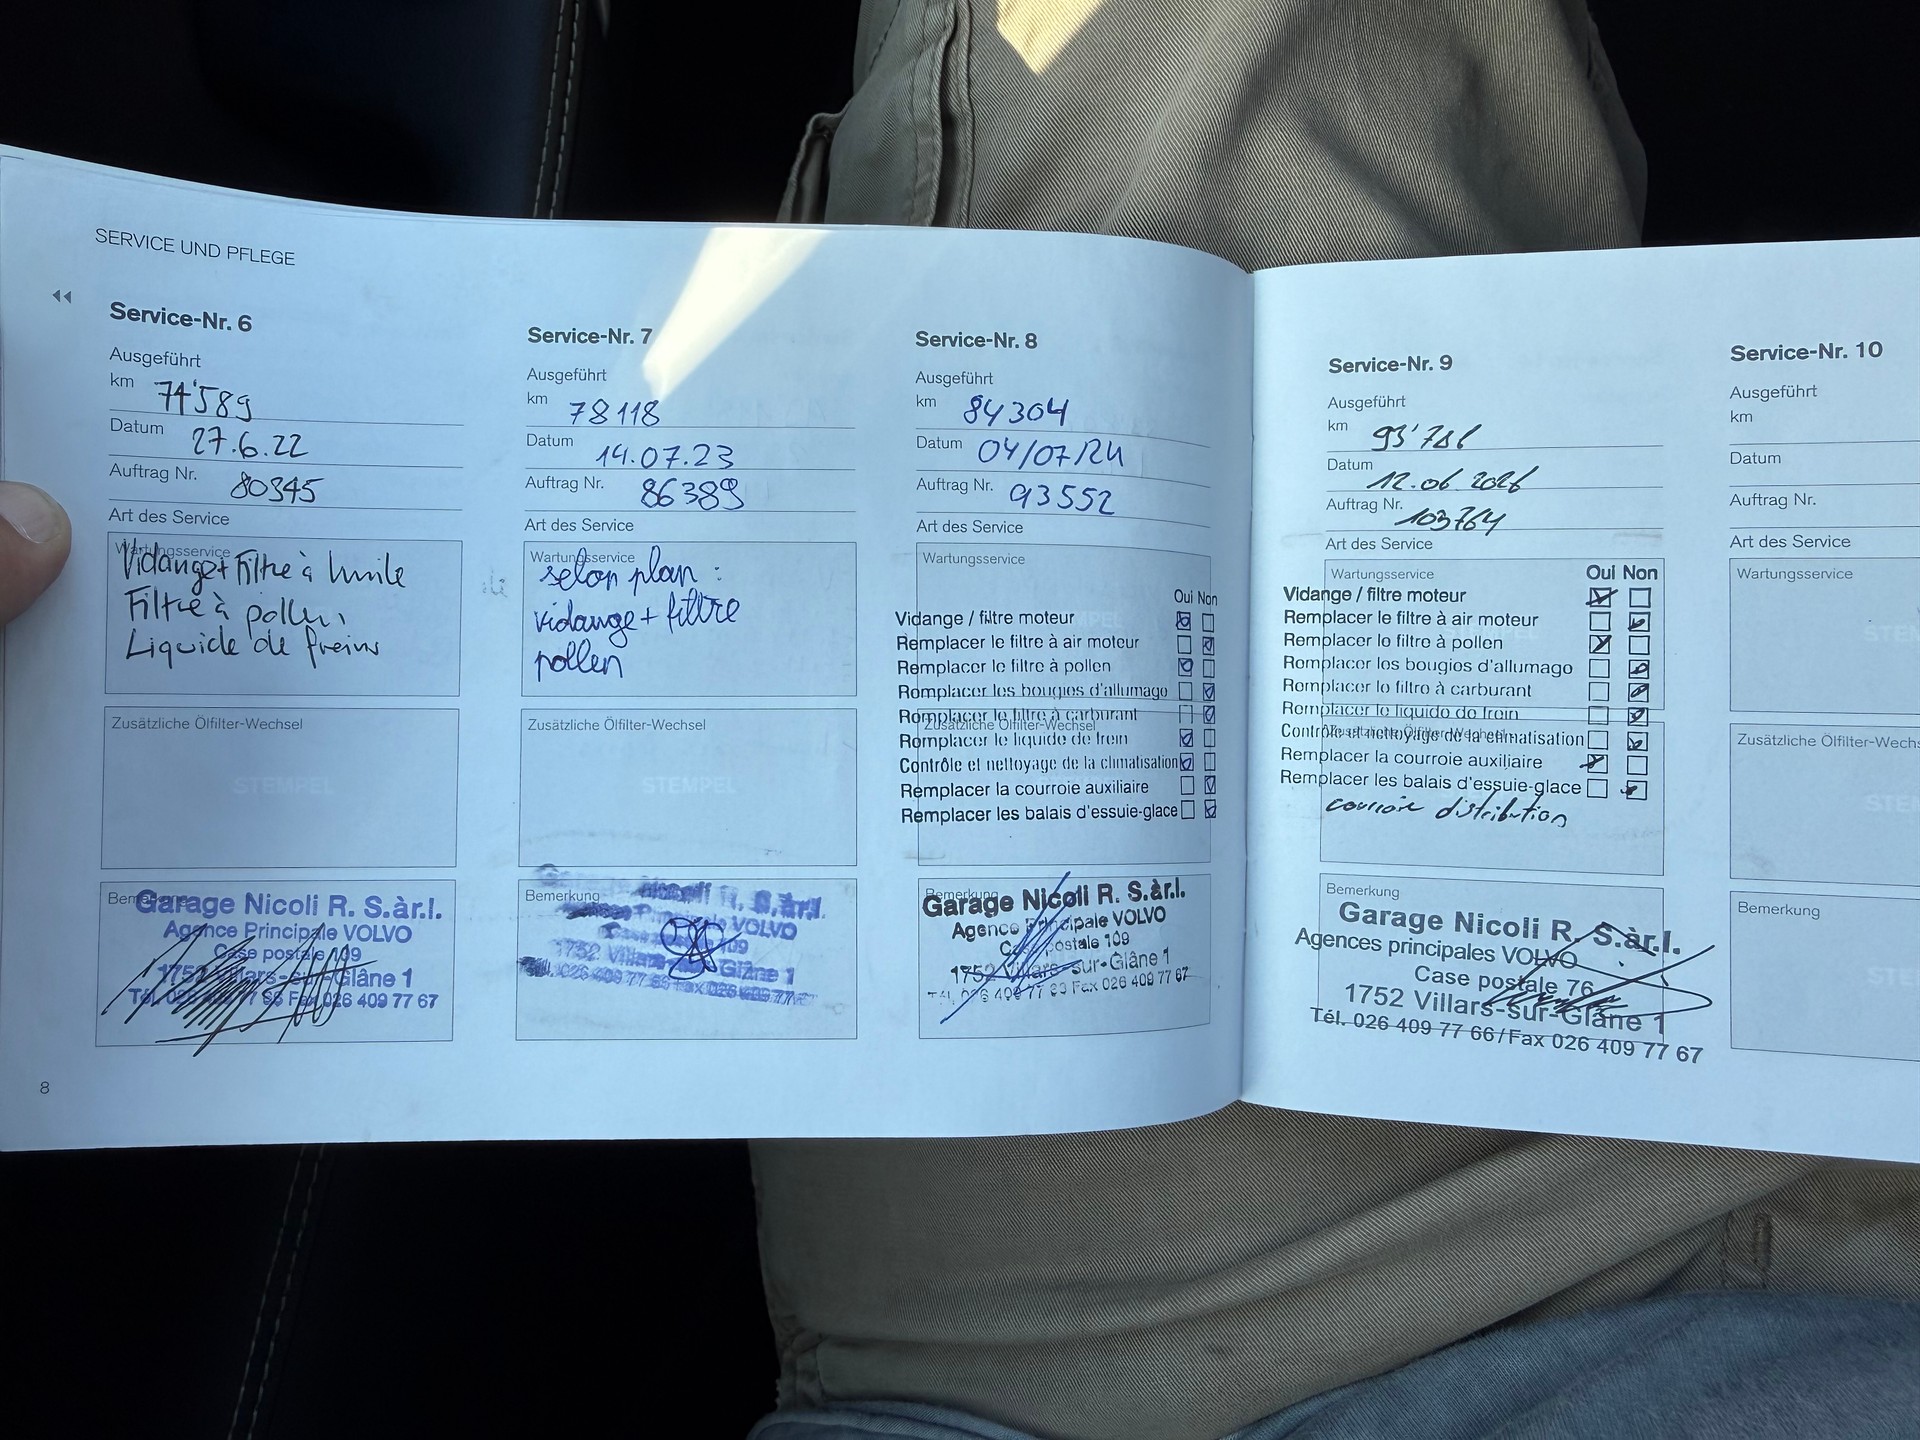 SERVICE UND PFLEGE
Service-Nr. 6
Ausgeführt
km 74'589
Datum 27.6.22
Auftrag Nr. 80345
Art des Service
Wartungsservice
Vidange + Filtre à huile
Filtre à pollen
Liquide de freins
Zusätzliche Ölfilter-Wechsel
STEMPEL
Bemerkung
Garage Nicoli R. S.àr.l.
Agence Principale VOLVO
Case postale 109
1752 Villars-sur-Glâne 1
Tél. 026 77 66 Fax 026 409 77 67
8
Service-Nr. 7
Ausgeführt
km 78118
Datum 14.07.23
Auftrag Nr. 86389
Art des Service
Wartungsservice
selon plan :
vidange + filtre
pollen
Zusätzliche Ölfilter-Wechsel
STEMPEL
Bemerkung
VOLVO
1752 Villars-sur-Glâne 1
Service-Nr. 8
Ausgeführt
km 84304
Datum 04/07/24
Auftrag Nr. 93552
Art des Service
Wartungsservice
Oui Non
Vidange / filtre moteur
Remplacer le filtre à air moteur
Remplacer le filtre à pollen
Remplacer les bougies d'allumage
Remplacer le filtre à carburant
Zusätzliche Ölfilter-Wechsel
Remplacer le liquide de frein
Contrôle et nettoyage de la climatisation
Remplacer la courroie auxiliaire
Remplacer les balais d'essuie-glace
Bemerkung
Garage Nicoli R. S.àr.l.
Agence Principale VOLVO
Case postale 109
1752 Villars-sur-Glâne 1
Fax 026 409 77 67
Service-Nr. 9
Ausgeführt
km
Datum 12.06.2026
Auftrag Nr. 103764
Art des Service
Wartungsservice
Oui Non
Vidange / filtre moteur
Remplacer le filtre à air moteur
Remplacer le filtre à pollen
Remplacer les bougies d'allumage
Remplacer le filtre à carburant
Remplacer le liquide de frein
Zusätzliche Ölfilter-Wechsel
Contrôle et nettoyage de la climatisation
Remplacer la courroie auxiliaire
Remplacer les balais d'essuie-glace
courroie distribution
Bemerkung
Garage Nicoli R. S.àr.l.
Agences principales VOLVO
Case postale 76
1752 Villars-sur-Glâne 1
Tél. 026 409 77 66 / Fax 026 409 77 67
Service-Nr. 10
Ausgeführt
km
Datum
Auftrag Nr.
Art des Service
Wartungsservice
STEM
Zusätzliche Ölfilter-Wechs
STE
Bemerkung
ST